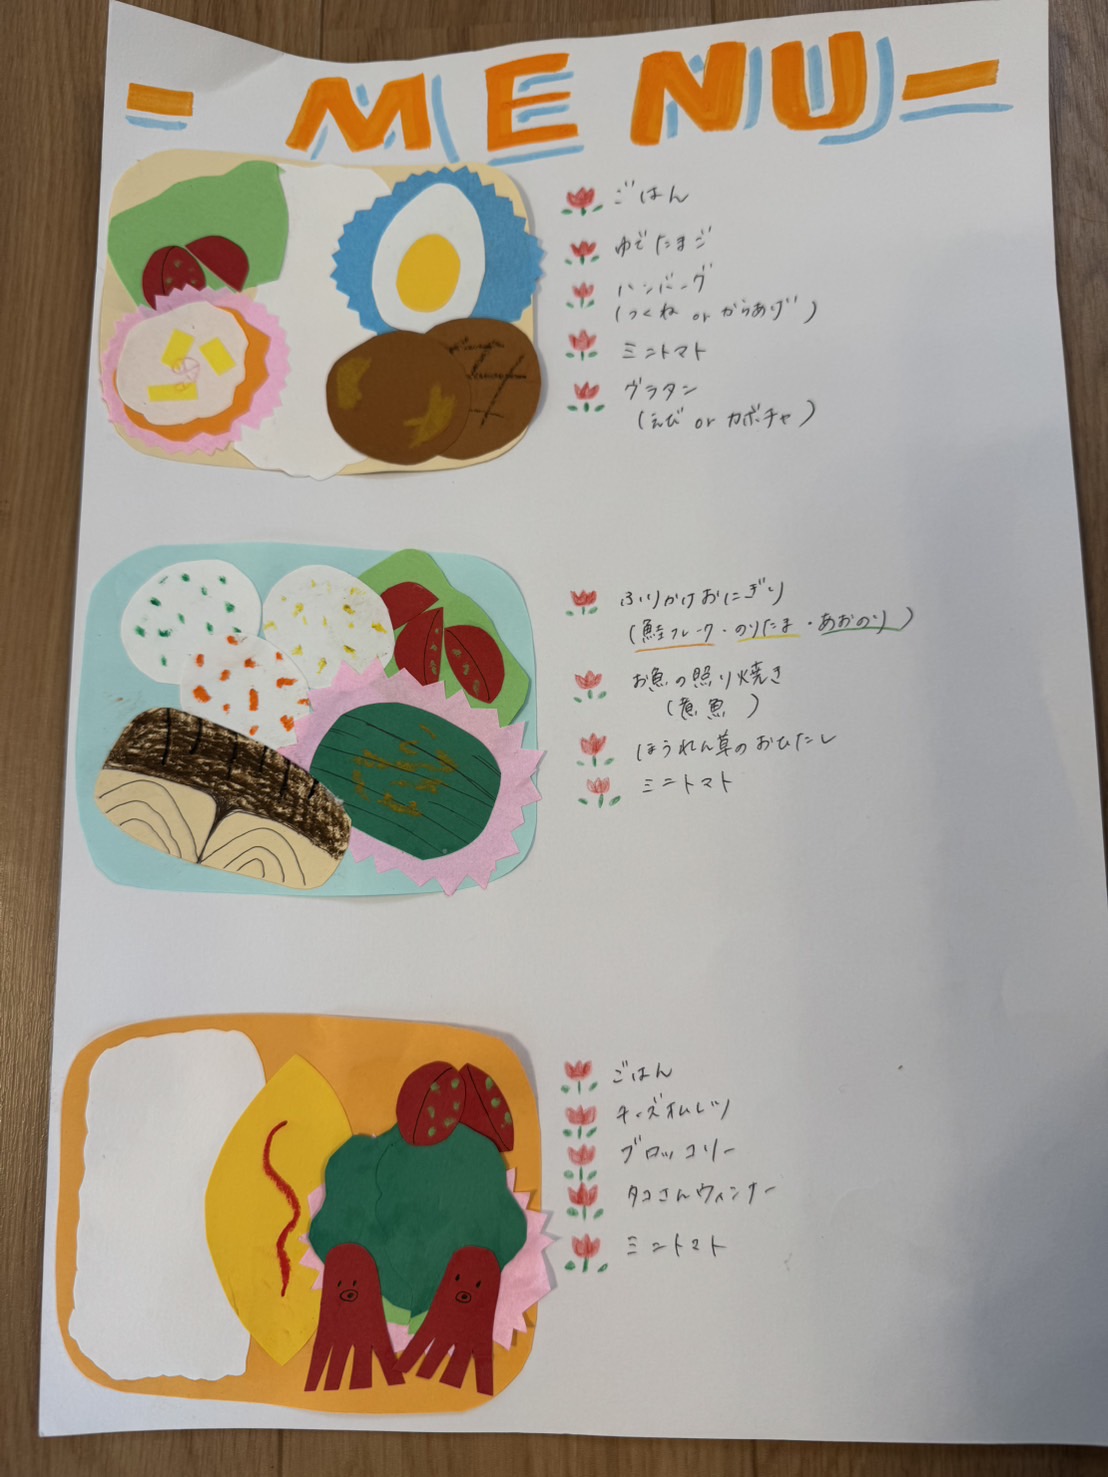 - MENU -
ごはん
ゆでたまご
ハンバーグ
(つくね or からあげ)
ミニトマト
グラタン
(えび or カボチャ)
ふりかけおにぎり
(鮭フレーク・のりたま・あおのり)
お魚の照り焼き
(煮魚)
ほうれん草のおひたし
ミニトマト
ごはん
チーズオムレツ
ブロッコリー
タコさんウィンナー
ミニトマト